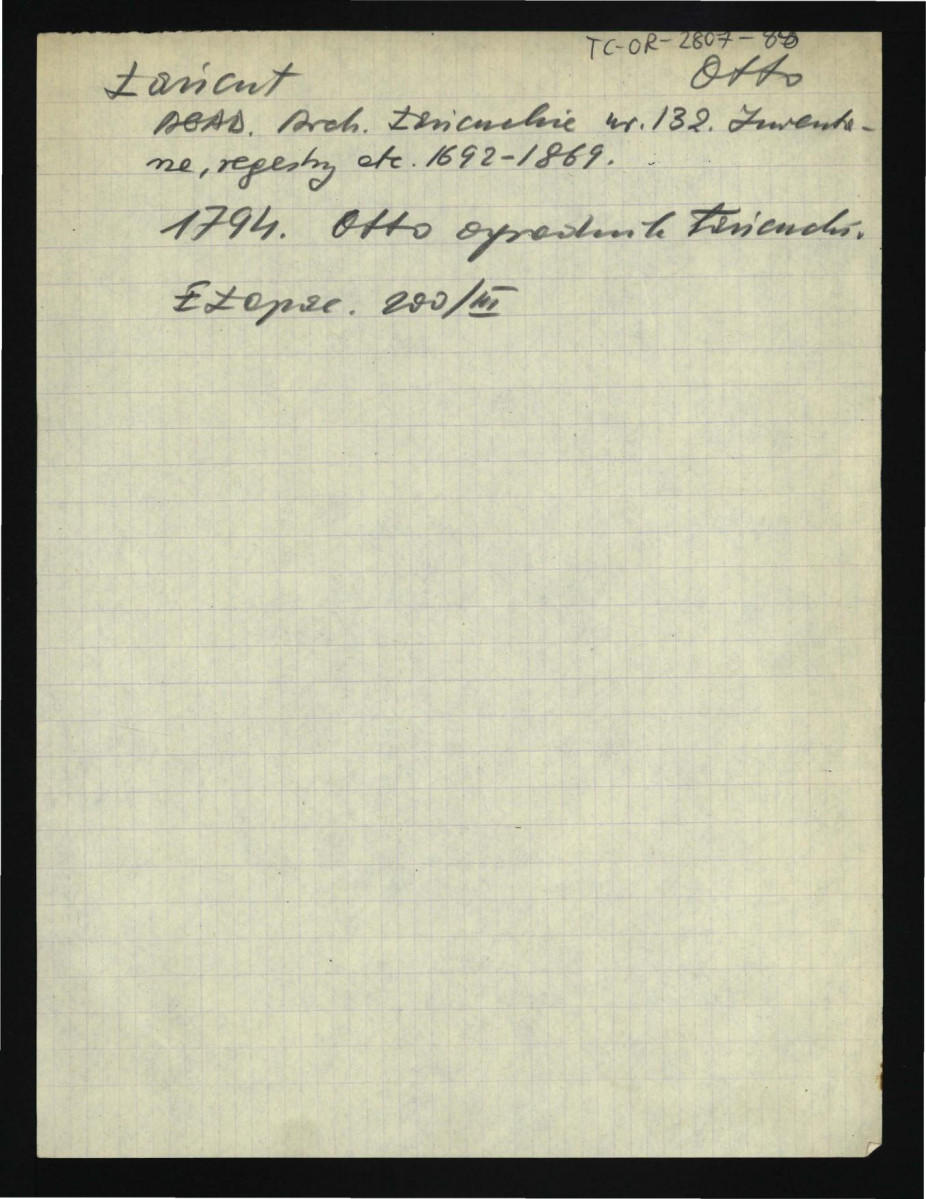 TC-OR-2807-
Łańcut Otto
AGAD. Arch. Łańcuckie nr. 132. Inwenta-
rze, regestry etc. 1692-1869.
1794. Otto ogrodnik Łańcucki.
E Łopac. 200/III